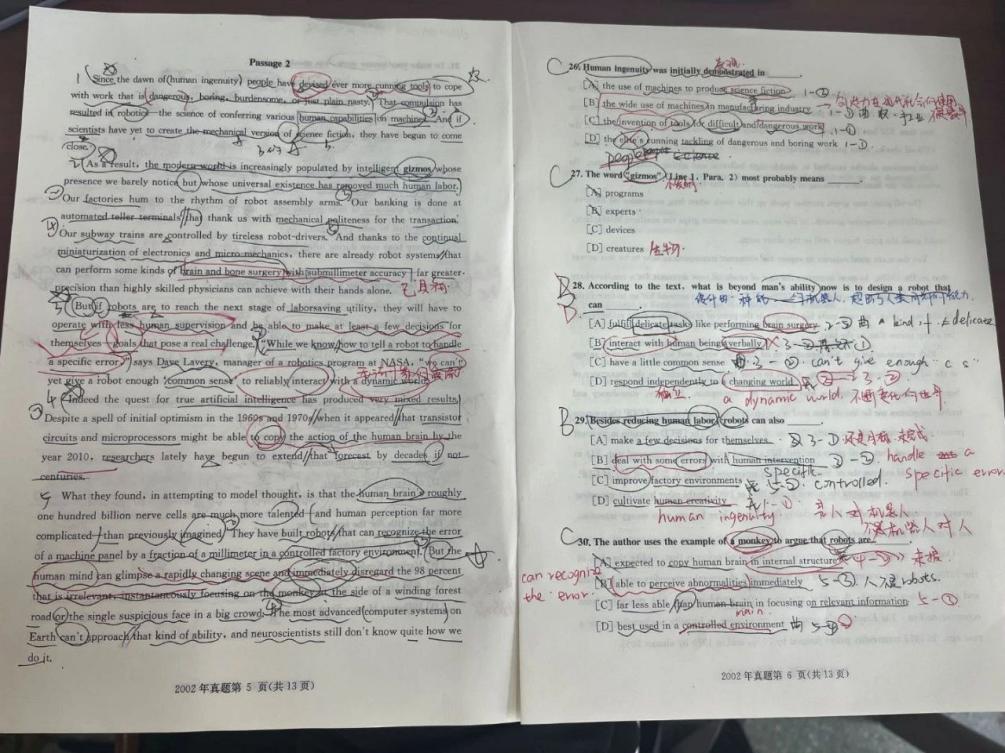 Passage 2
1 Since the dawn of human ingenuity people have devised ever more cunning tools to cope
with work that is dangerous, boring, burdensome, or just plain nasty. That compulsion has
resulted in robotics—the science of conferring various human capabilities on machines. And if
scientists have yet to create the mechanical version of science fiction, they have begun to come
close.
2 As a result, the modern world is increasingly populated by intelligent gizmos whose
presence we barely notice but whose universal existence has removed much human labor.
Our factories hum to the rhythm of robot assembly arms. Our banking is done at
automated teller terminals that thank us with mechanical politeness for the transaction.
Our subway trains are controlled by tireless robot-drivers. And thanks to the continual
miniaturization of electronics and micro-mechanics, there are already robot systems that
can perform some kinds of brain and bone surgery with submillimeter accuracy— far greater
precision than highly skilled physicians can achieve with their hands alone.
3 But if robots are to reach the next stage of laborsaving utility, they will have to
operate with less human supervision and be able to make at least a few decisions for
themselves—goals that pose a real challenge. "While we know how to tell a robot to handle
a specific error," says Dave Lavery, manager of a robotics program at NASA, "we can't
yet give a robot enough 'common sense' to reliably interact with a dynamic world."
4 Indeed the quest for true artificial intelligence has produced very mixed results.
Despite a spell of initial optimism in the 1960s and 1970s when it appeared that transistor
circuits and microprocessors might be able to copy the action of the human brain by the
year 2010, researchers lately have begun to extend that forecast by decades if not
centuries.
5 What they found, in attempting to model thought, is that the human brain's roughly
one hundred billion nerve cells are much more talented—and human perception far more
complicated—than previously imagined. They have built robots that can recognize the error
of a machine panel by a fraction of a millimeter in a controlled factory environment. But the
human mind can glimpse a rapidly changing scene and immediately disregard the 98 percent
that is irrelevant, instantaneously focusing on the monkey at the side of a winding forest
road or the single suspicious face in a big crowd. The most advanced computer systems on
Earth can't approach that kind of ability, and neuroscientists still don't know quite how we
do it.
2002 年真题第 5 页(共 13 页)
C 26. Human ingenuity was initially demonstrated in ______.
[A] the use of machines to produce science fiction. 1-②
[B] the wide use of machines in manufacturing industry
[C] the invention of tools for difficult and dangerous work 1-①
[D] the elite's cunning tackling of dangerous and boring work 1-①
people
C 27. The word "gizmos" (Line 1, Para. 2) most probably means ______.
[A] programs
[B] experts
[C] devices
[D] creatures 生物
B 28. According to the text, what is beyond man's ability now is to design a robot that
can ______.
[A] fulfill delicate tasks like performing brain surgery delicate
[B] interact with human beings verbally
[C] have a little common sense 3-② can't give enough "c s"
[D] respond independently to a changing world
独立 a dynamic world.
B 29. Besides reducing human labor, robots can also ______.
[A] make a few decisions for themselves 3-①
[B] deal with some errors with human intervention 3-② handle a
specific error
[C] improve factory environments 5-② controlled.
[D] cultivate human creativity 1-①
human ingenuity
C 30. The author uses the example of a monkey to argue that robots are ______.
[A] expected to copy human brain in internal structure
can recognize
the error.
[B] able to perceive abnormalities immediately 5-③ robots.
[C] far less able than human brain in focusing on relevant information 5-①
[D] best used in a controlled environment
2002 年真题第 6 页(共 13 页)